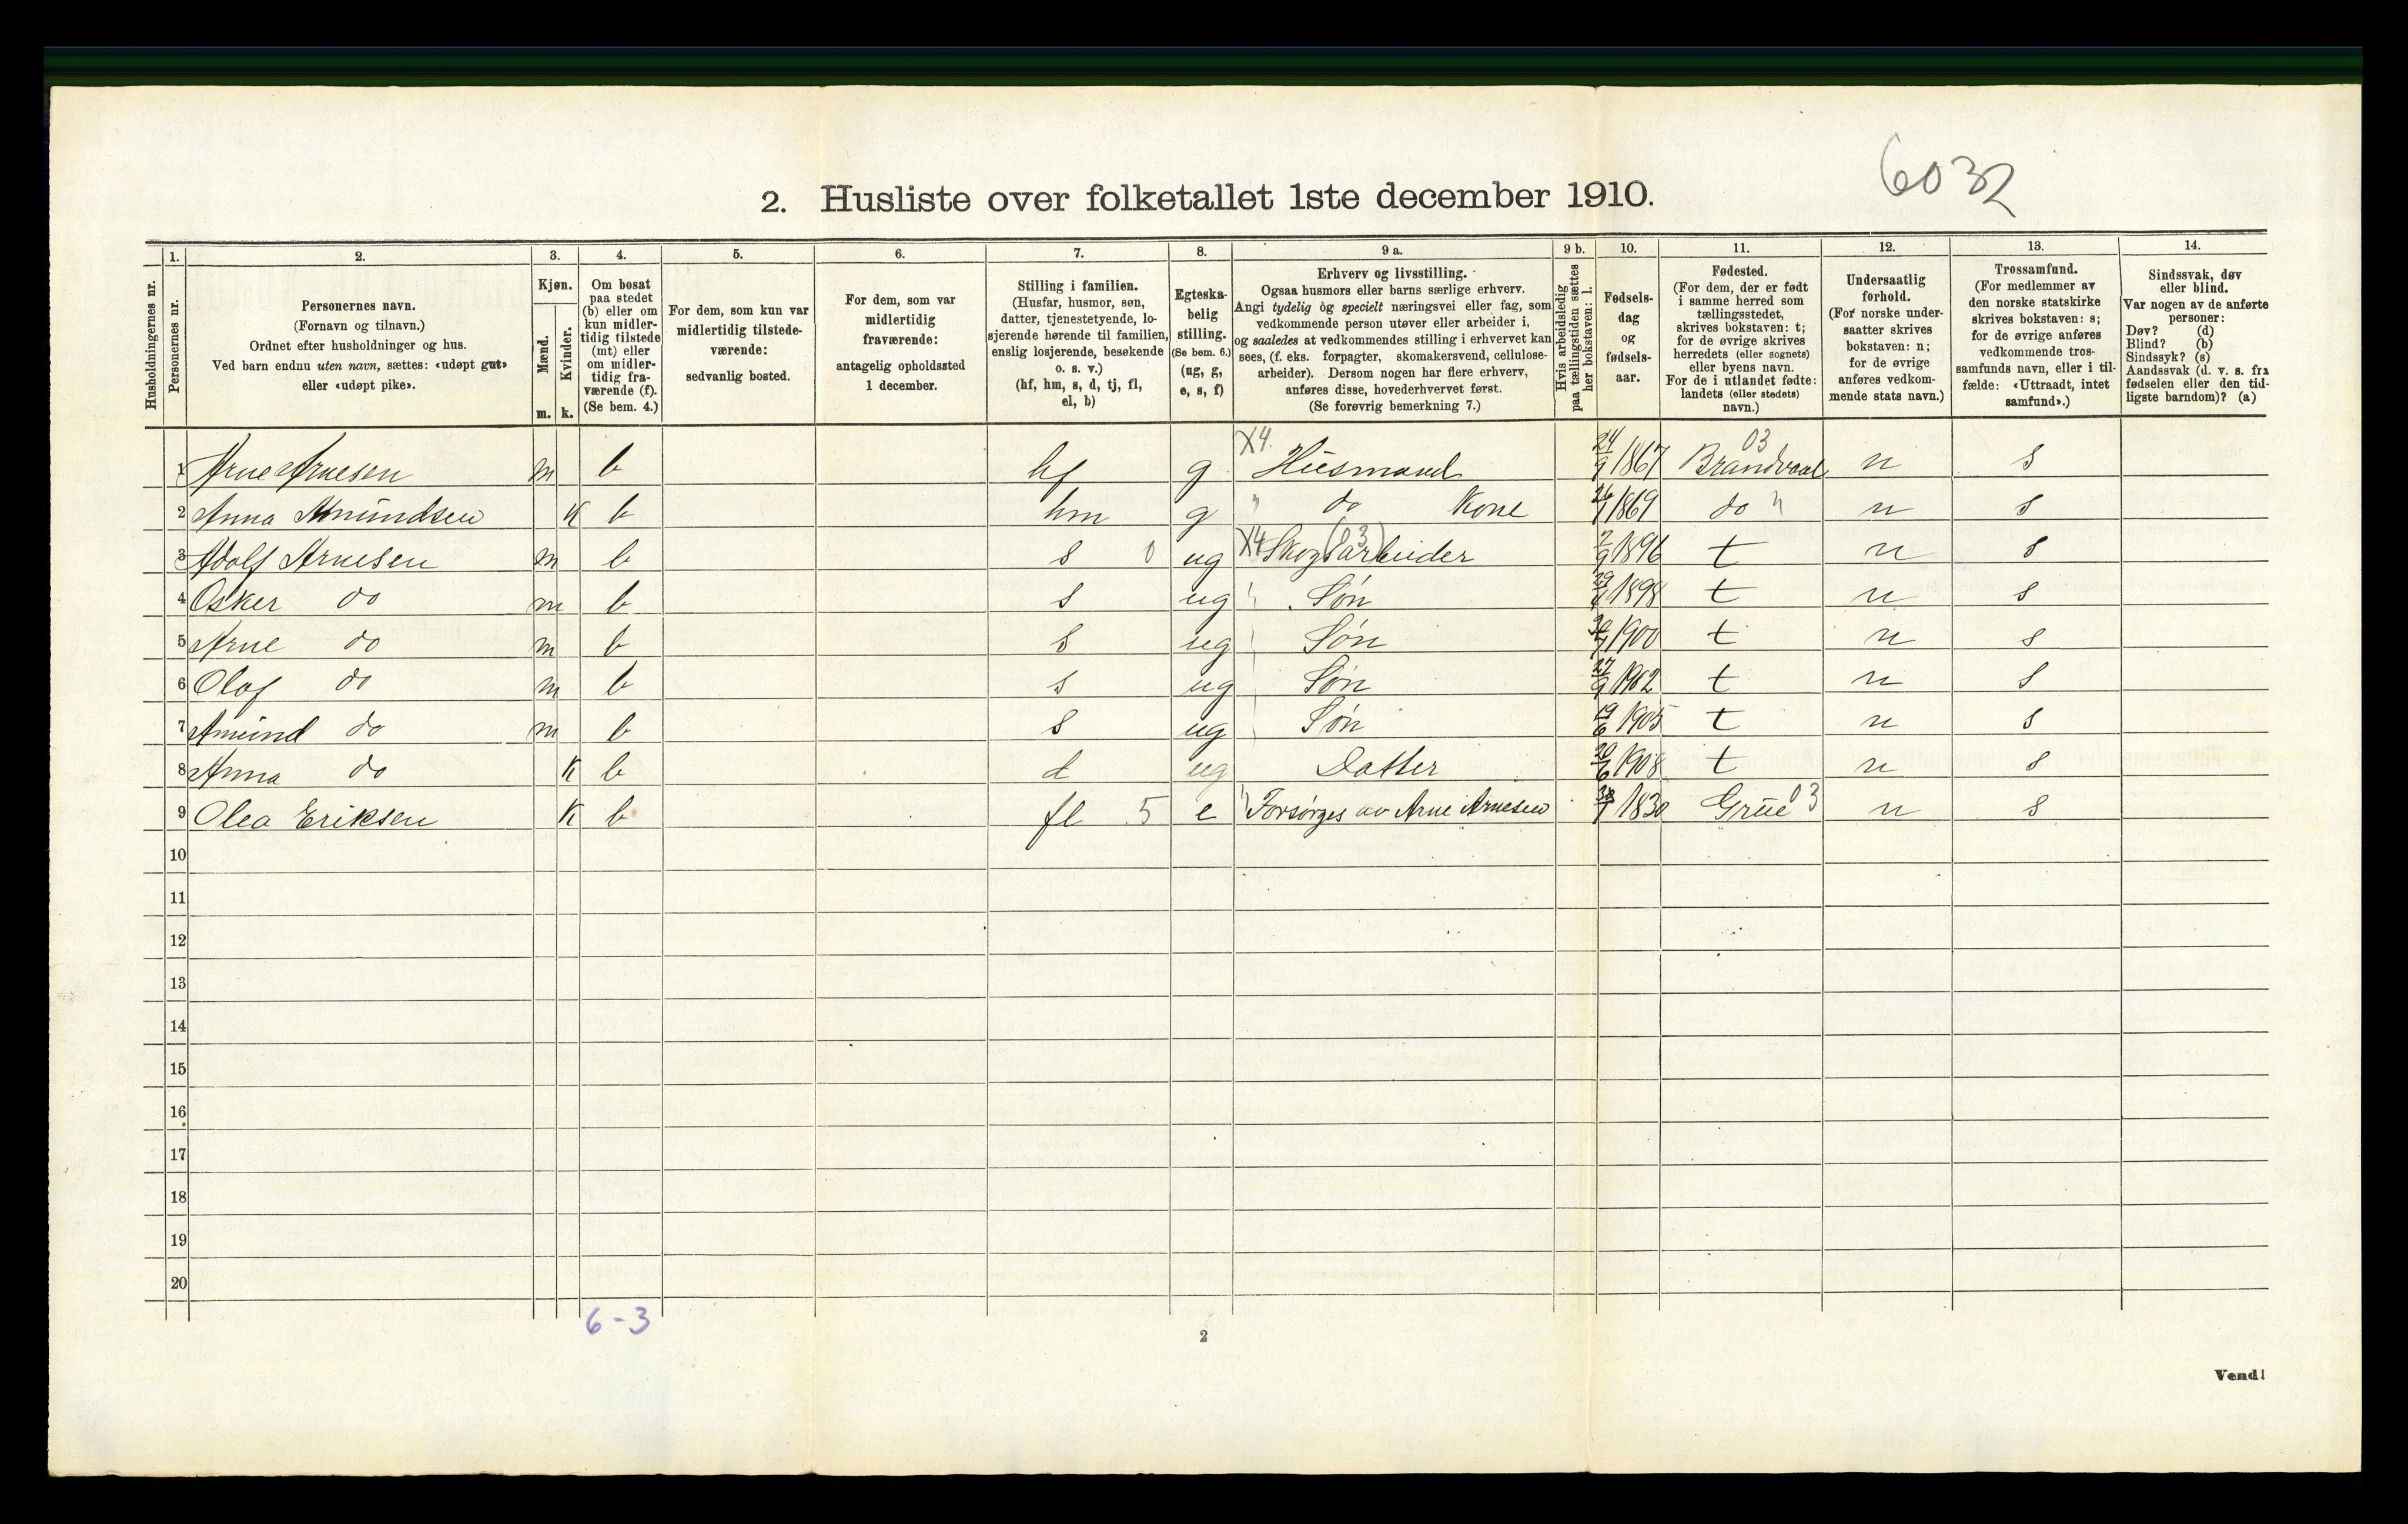 6032
2. Husliste over folketallet 1ste december 1910.
Husholdningernes nr.
1.
Personernes nr.
2.
Personernes navn.
(Fornavn og tilnavn.)
Ordnet efter husholdninger og hus.
Ved barn endnu uten navn, sættes: «udøpt gut»
eller «udøpt pike».
3.
Kjøn.
Mænd.
m.
Kvinder.
k.
4.
Om bosat
paa stedet
(b) eller om
kun midler-
tidig tilstede
(mt) eller
om midler-
tidig fra-
værende (f).
(Se bem. 4.)
5.
For dem, som kun var
midlertidig tilstede-
værende:
sedvanlig bosted.
6.
For dem, som var
midlertidig
fraværende:
antagelig opholdssted
1 december.
7.
Stilling i familien.
(Husfar, husmor, søn,
datter, tjenestetyende, lo-
sjerende hørende til familien,
enslig losjerende, besøkende
o. s. v.)
(hf, hm, s, d, tj, fl,
el, b)
8.
Egteska-
belig
stilling.
(Se bem. 6.)
(ug, g,
e, s, f)
9 a.
Erhverv og livsstilling.
Ogsaa husmors eller barns særlige erhverv.
Angi tydelig òg specielt næringsvei eller fag, som
vedkommende person utøver eller arbeider i,
og saaledes at vedkommendes stilling i erhvervet kan
sees, (f. eks. forpagter, skomakersvend, cellulose-
arbeider). Dersom nogen har flere erhverv,
anføres disse, hovederhvervet først.
(Se forøvrig bemerkning 7.)
9 b.
Hvis arbeidsledig
paa tællingstiden sættes
her bokstaven: l.
10.
Fødsels-
dag
og
fødsels-
aar.
11.
Fødested.
(For dem, der er født
i samme herred som
tællingsstedet,
skrives bokstaven: t;
for de øvrige skrives
herredets (eller sognets)
eller byens navn.
For de i utlandet fødte:
landets (eller stedets)
navn.)
12.
Undersaatlig
forhold.
(For norske under-
saatter skrives
bokstaven: n;
for de øvrige
anføres vedkom-
mende stats navn.)
13.
Trossamfund.
(For medlemmer av
den norske statskirke
skrives bokstaven: s;
for de øvrige anføres
vedkommende tros-
samfunds navn, eller i til-
fælde: «Uttraadt, intet
samfund».)
14.
Sindssvak, døv
eller blind.
Var nogen av de anførte
personer:
Døv? (d)
Blind? (b)
Sindssyk? (s)
Aandssvak (d. v. s. fra
fødselen eller den tid-
ligste barndom)? (a)
1 Arne Arnesen m b hf g X4. Husmand 24/9 1867 Brandvoal 03 n s
2 Anna Amundsen K b hm g " do Kone 1869 do " n s
3 Adolf Arnesen m b s 0 ug X4 Skogsarbeider (03) 2/9 1896 t n s
4 Osker do m b s ug " Søn 1898 t n s
5 Arne do m b s ug " Søn 1900 t n s
6 Olaf do m b s ug " Søn 27/9 1902 t n s
7 Amund do m b s ug " Søn 19/6 1905 t n s
8 Anna do K b d ug Datter 20/6 1908 t n s
9 Olea Eriksen K b fl 5 e " Forsørges av Arne Arnesen 1830 Grue 03 n s
10
11
12
13
14
15
16
17
18
19
20
6-3
2
Vend!